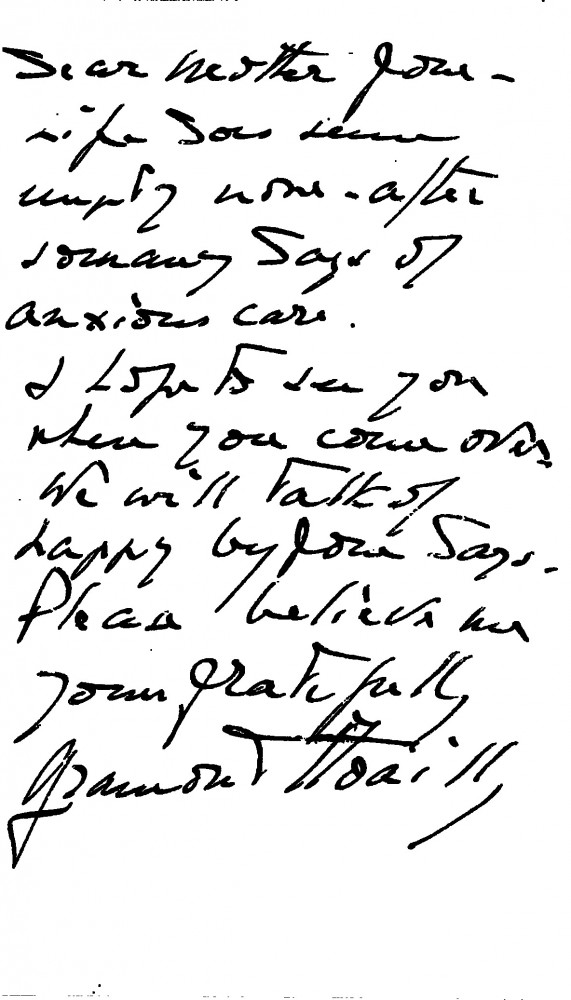 Dear Mother Jone -
life does seem
empty none - after
so many Days of
anxious care.
I hope to see you
when you come over
We will Talk of
happy by gone Days -
Please believe me
your gratefully
Gramont